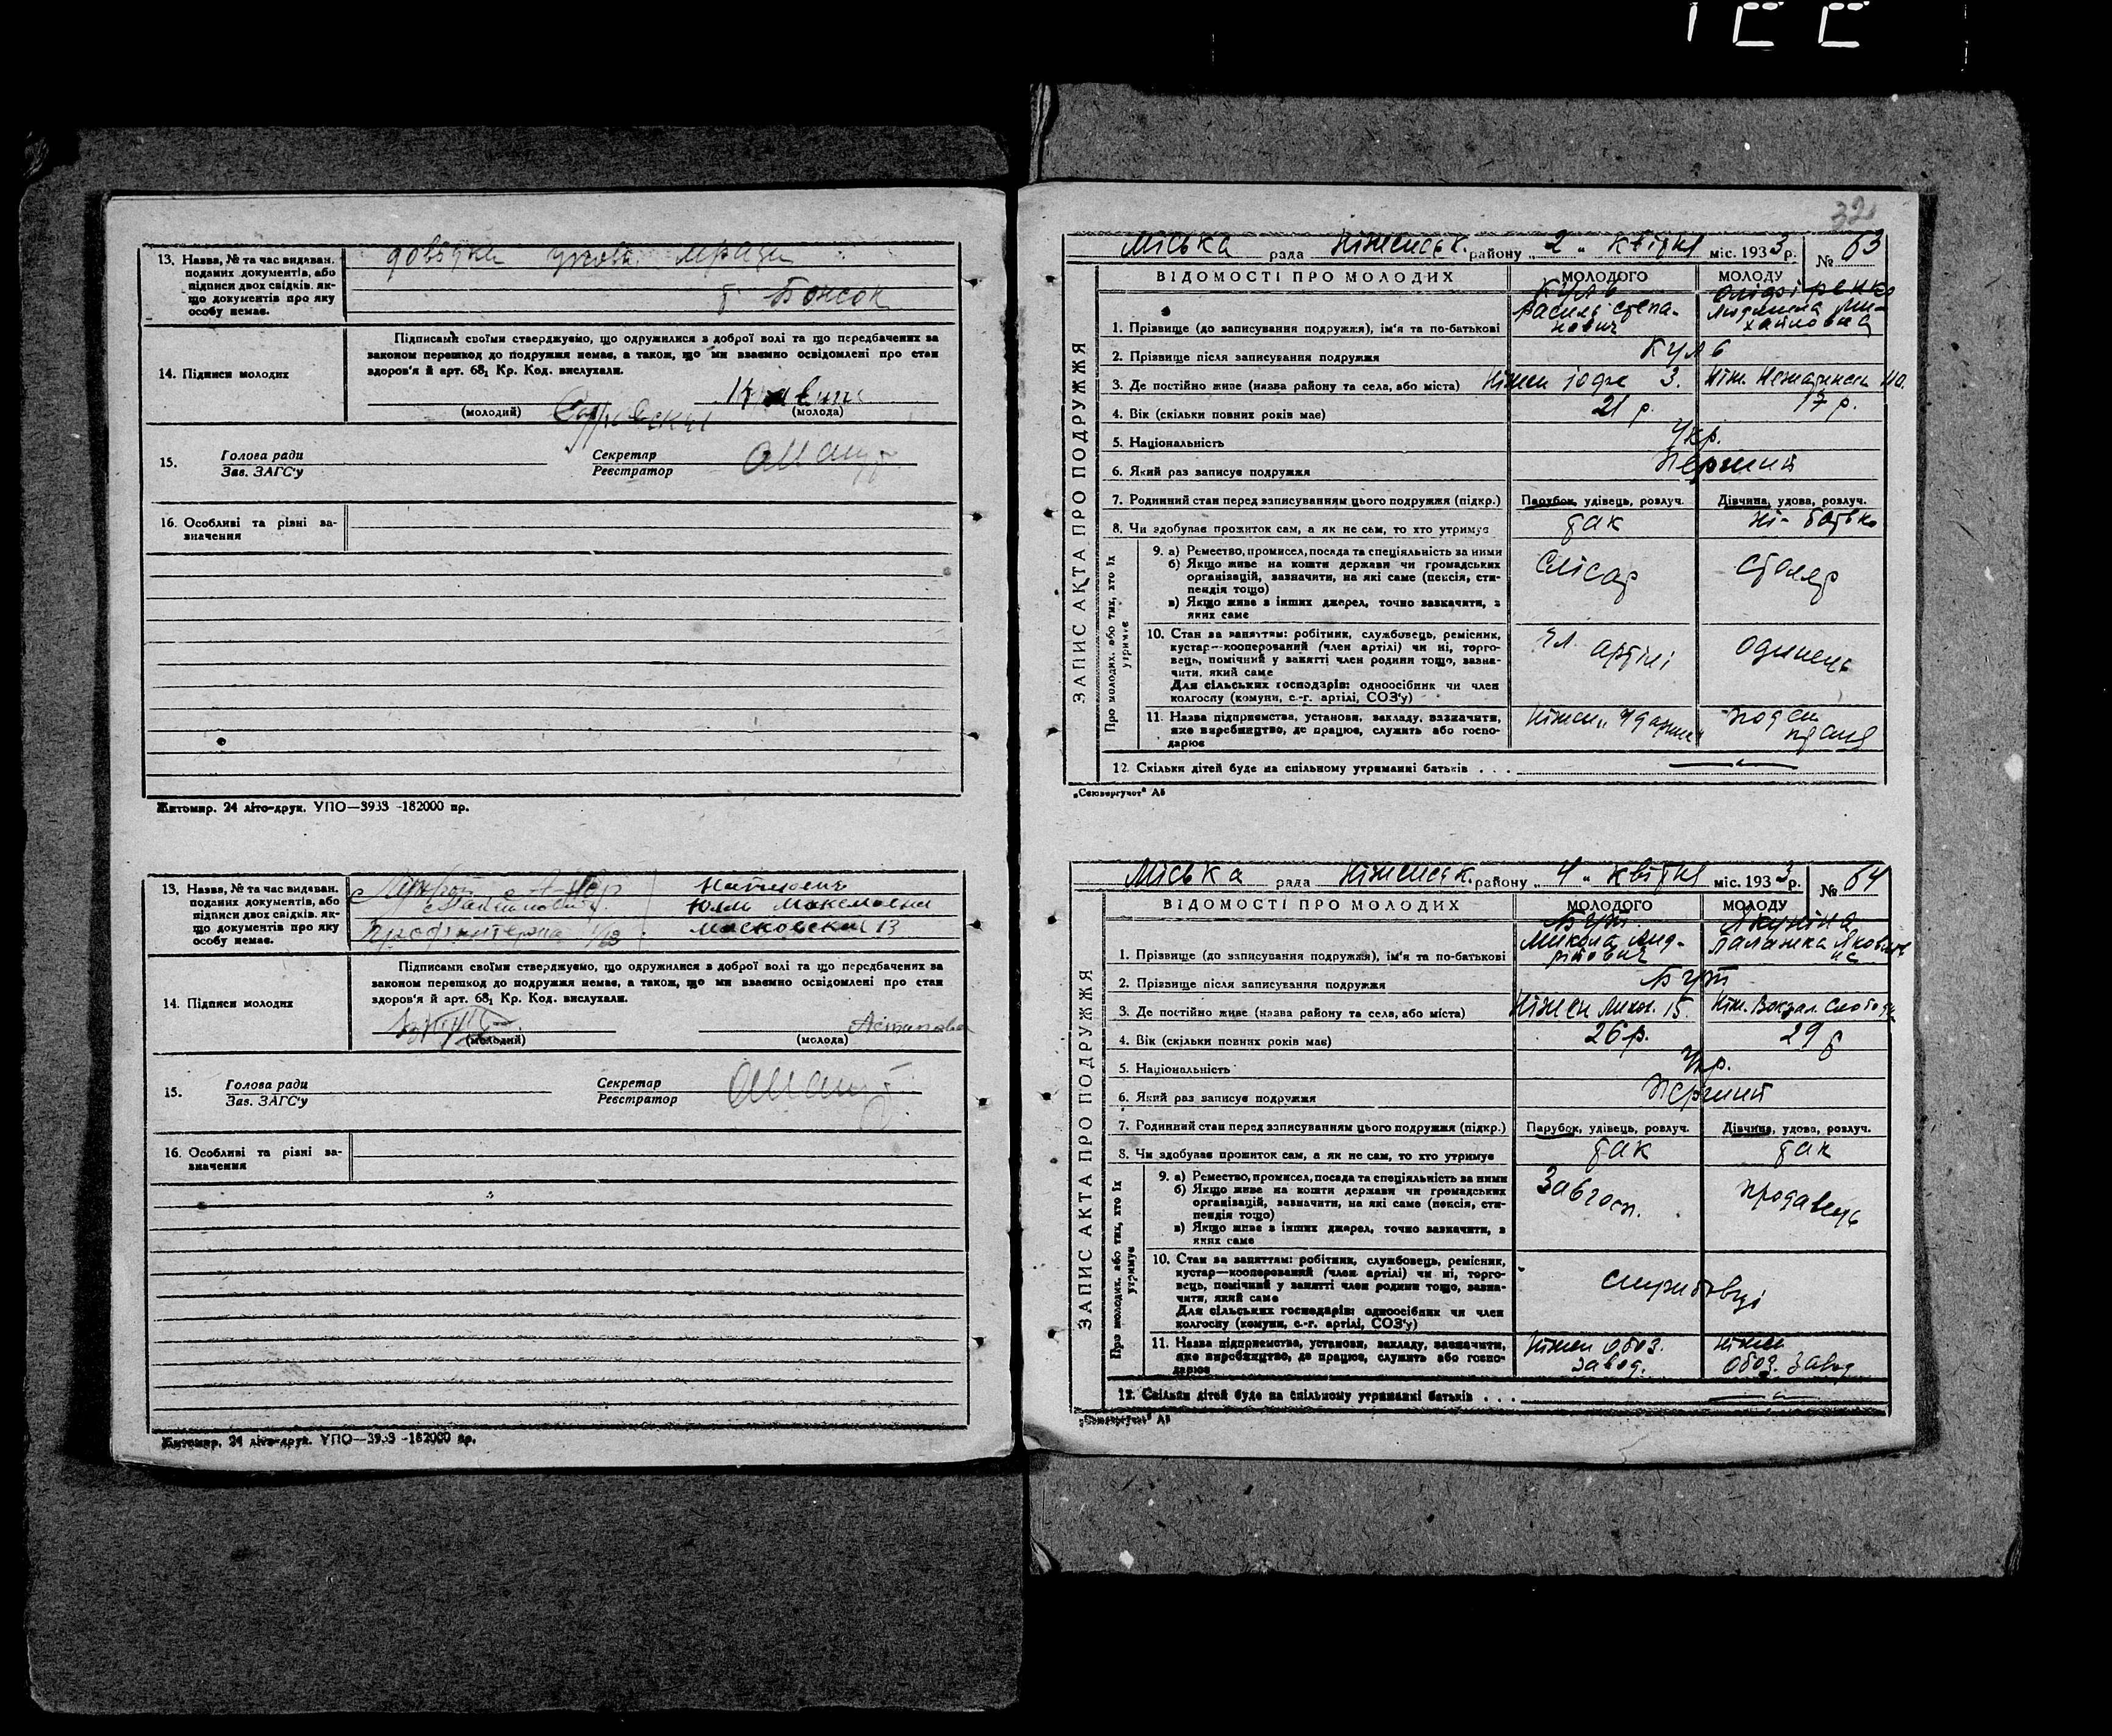 13. Назва, № та час видаван.
поданих документів, або
підписи двох свідків, як-
що документів про яку
особу немає.
довідки мраци
Бонсок
14. Підписи молодих
Підписами своїми стверджуємо, що одружилися з доброї волі та що передбачених за
законом перешкод до подружжя немає, а також, що ми взаємно освідомлені про стан
здоров'я й арт. 68₁ Кр. Код. вислухали.
(молодий)
(молода)
15.
Голова ради
Зав. ЗАГС'у
Секретар
Реєстратор
16. Особливі та різні за-
значення
Житомир. 24 літо-друк. УПО—3933 -182000 пр.
13. Назва, № та час видаван.
поданих документів, або
підписи двох свідків, як-
що документів про яку
особу немає.
Профинтерна
Юлль Максмовна
Московская 13
14. Підписи молодих
Підписами своїми стверджуємо, що одружилися з доброї волі та що передбачених за
законом перешкод до подружжя немає, а також, що ми взаємно освідомлені про стан
здоров'я й арт. 68₁ Кр. Код. вислухали.
(молодий)
(молода)
15.
Голова ради
Зав. ЗАГС'у
Секретар
Реєстратор
16. Особливі та різні за-
значення
Житомир. 24 літо-друк. УПО—3933 -182000 пр.
32
Міська рада Ніженськ. району „ 2 „ квітня міс. 1933 р. № 63
ЗАПИС АКТА ПРО ПОДРУЖЖЯ
ВІДОМОСТІ ПРО МОЛОДИХ
МОЛОДОГО
МОЛОДУ
1. Прізвище (до записування подружжя), ім'я та по-батькові
Куль
Василь Степа-
нович
Оліфіренко
Людмила Ми-
хайловна
2. Прізвище після записування подружжя
Куль
3. Де постійно живе (назва району та села, або міста)
Ніжен 3.
Ніж.
4. Вік (скільки повних років має)
21 р.
17 р.
5. Національність
Укр.
6. Який раз записує подружжя
Перший
7. Родинний стан перед записуванням цього подружжя (підкр.)
Парубок, удівець, розлуч.
Дівчина, удова, розлуч.
8. Чи здобуває прожиток сам, а як не сам, то хто утримує
так
ні- батько
Про молодих, або тих, хто їх
утримує
9. а) Ремество, промисел, посада та спеціяльність за ними
б) Якщо живе на кошти держави чи громадських
організацій, зазначити, на які саме (пенсія, сти-
пендія тощо)
в) Якщо живе з інших джерел, точно зазначити, з
яких саме
Слісар
столяр
10. Стан за заняттям: робітник, службовець, ремісник,
кустар—кооперований (член артілі) чи ні, торго-
вець, помічний у занятті член родини тощо, зазна-
чити, який саме
Для сільських господарів: одноосібник чи член
колгоспу (комуни, с.-г. артілі, СОЗ'у)
чл. артілі
одинець
11. Назва підприємства, установи, закладу, зазначити,
яке виробництво, де працює, служить або госпо-
дарює
Ніжен „Ударник“
12. Скільки дітей буде на спільному утриманні батьків . . .
„Союзоргучот“ А5
Міська рада Ніженськ. району „ 4 „ квітня міс. 1933 р. № 64
ЗАПИС АКТА ПРО ПОДРУЖЖЯ
ВІДОМОСТІ ПРО МОЛОДИХ
МОЛОДОГО
МОЛОДУ
1. Прізвище (до записування подружжя), ім'я та по-батькові
Бут
Микола Анд-
рійович
Якуніна
Палажка Яковлев
на
2. Прізвище після записування подружжя
Бут
3. Де постійно живе (назва району та села, або міста)
Ніжен 15.
Ніж. Вокзал. Слобода
4. Вік (скільки повних років має)
26 р.
29 р
5. Національність
Укр.
6. Який раз записує подружжя
Перший
7. Родинний стан перед записуванням цього подружжя (підкр.)
Парубок, удівець, розлуч.
Дівчина, удова, розлуч.
8. Чи здобуває прожиток сам, а як не сам, то хто утримує
так
так
Про молодих, або тих, хто їх
утримує
9. а) Ремество, промисел, посада та спеціяльність за ними
б) Якщо живе на кошти держави чи громадських
організацій, зазначити, на які саме (пенсія, сти-
пендія тощо)
в) Якщо живе з інших джерел, точно зазначити, з
яких саме
Завгосп.
продавець
10. Стан за заняттям: робітник, службовець, ремісник,
кустар—кооперований (член артілі) чи ні, торго-
вець, помічний у занятті член родини тощо, зазна-
чити, який саме
Для сільських господарів: одноосібник чи член
колгоспу (комуни, с.-г. артілі, СОЗ'у)
службовці
11. Назва підприємства, установи, закладу, зазначити,
яке виробництво, де працює, служить або госпо-
дарює
Ніжен обоз.
завод.
Ніжен
обоз. завод
12. Скільки дітей буде на спільному утриманні батьків . . .
„Союзоргучот“ А5